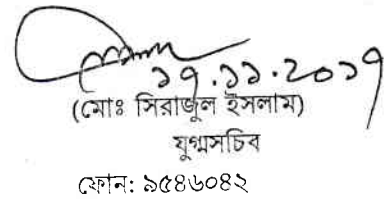 ১৭.১১.২০১৭
(মোঃ সিরাজুল ইসলাম)
যুগ্মসচিব
ফোন: ৯৫৪৬০৪২